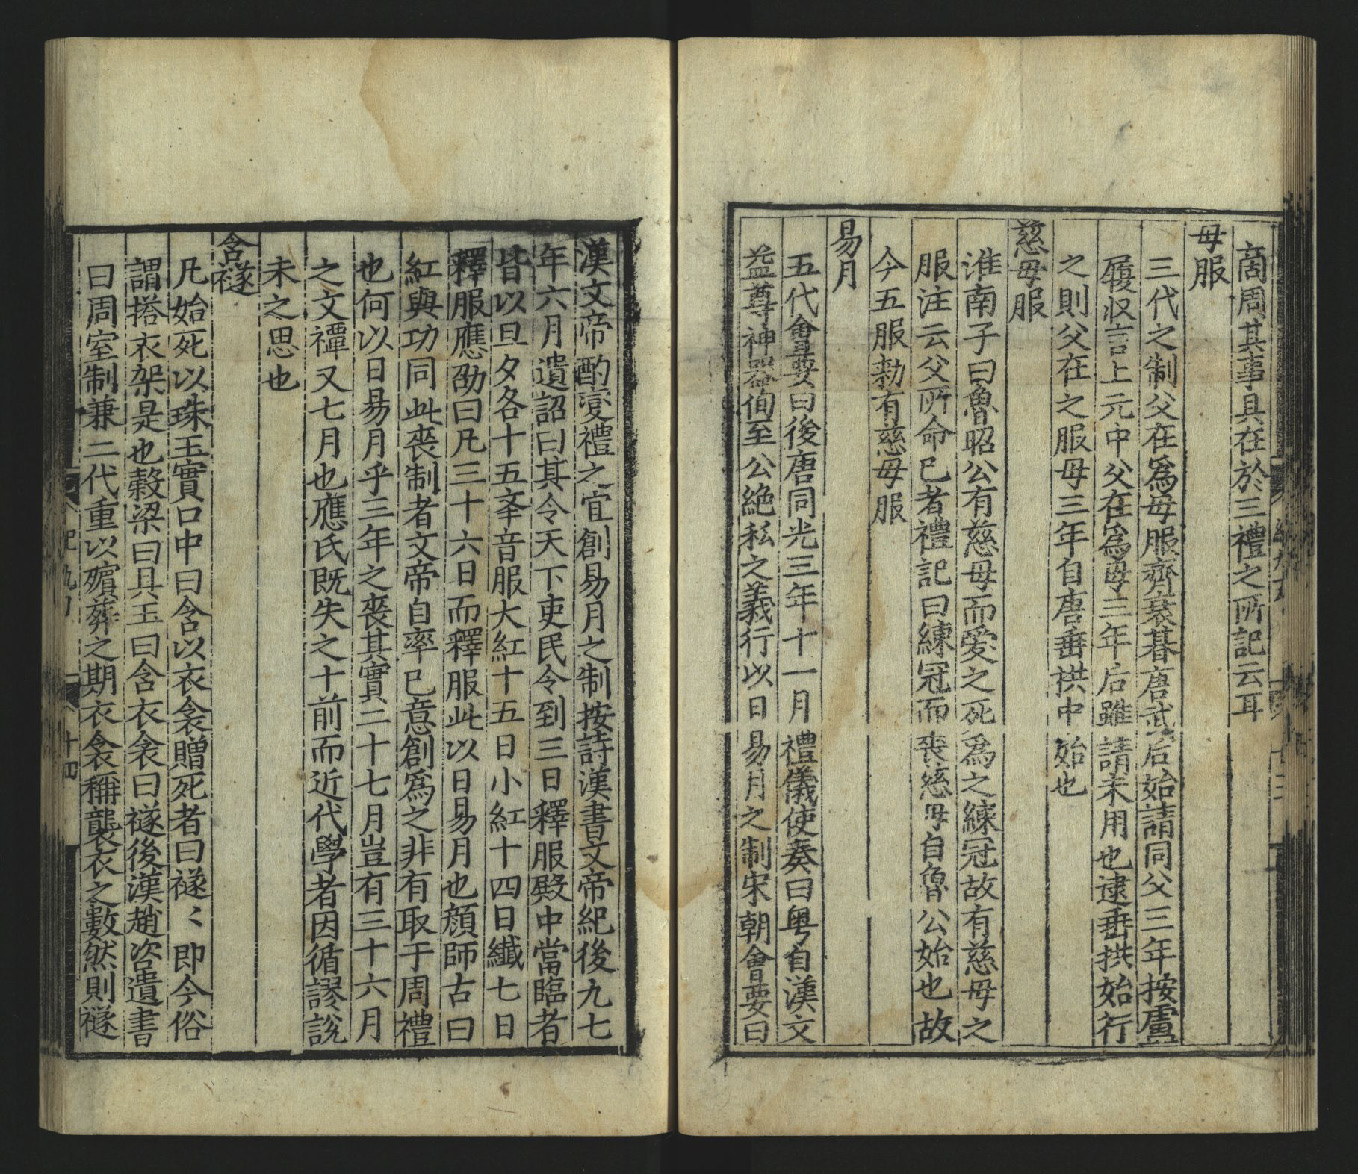 商周其事具在於三禮之所記云耳
母服
三代之制父在爲母服齊衰朞唐武后始請同父三年按盧
履冰言上元中父在爲母三年后雖請未用也逮垂拱始行
之則父在之服母三年自唐垂拱中始也
慈母服
淮南子曰魯昭公有慈母而愛之死爲之練冠故有慈母之
服注云父所命已者禮記曰練冠而喪慈母自魯公始也故
今五服勑有慈母服
易月
五代會要曰後唐同光三年十一月禮儀使奏曰粤自漢文
益尊神器徇至公絶私之義行以日易月之制宋朝會要曰
漢文帝酌變禮之宜創易月之制按詩漢書文帝紀後九七
年六月遺詔曰其令天下吏民令到三日釋服殿中當臨者
皆以旦夕各十五本音服大紅十五日小紅十四日纖七日
釋服應劭曰凡三十六日而釋服此以日易月也顔師古曰
紅與功同此喪制者文帝自率已意創爲之非有取于周禮
也何以日易月乎三年之喪其實二十七月豈有三十六月
之文禫又七月也應氏既失之十前而近代學者因循謬說
未之思也
含襚
凡始死以珠玉實口中曰含以衣衾贈死者曰襚〻即今俗
謂搭衣架是也穀梁曰具玉曰含衣衾曰襚後漢趙咨遺書
曰周室制兼二代重以殯葬之期衣衾稱襲衣之數然則襚
十四